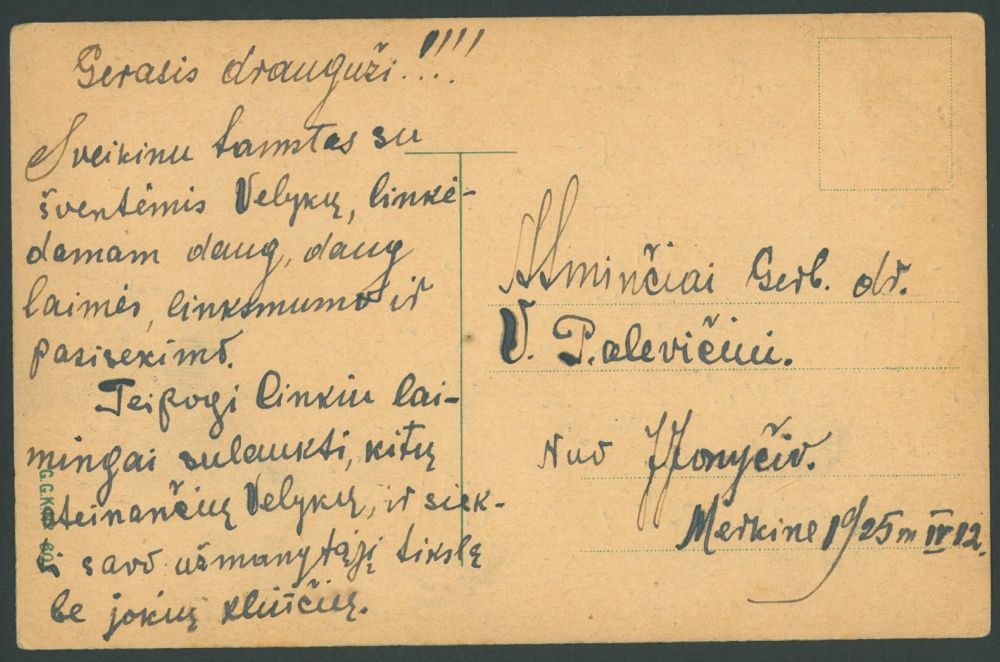 Gerasis drauguži!!!!
Sveikinu tamstas su
šventėmis Velykų, linkė-
damam daug, daug
laimės, linksmumo ir
pasisekimo.
Teipogi linkiu lai-
mingai sulaukti, kitų
ateinančių Velykų, ir siek-
ti savo užmanytąjį tikslą
be jokių kliūčių.
Atminčiai Gerb. dr.
V. P.alevičiui.
Nuo
Merkine 1925 m IV 12.
G.G.K.